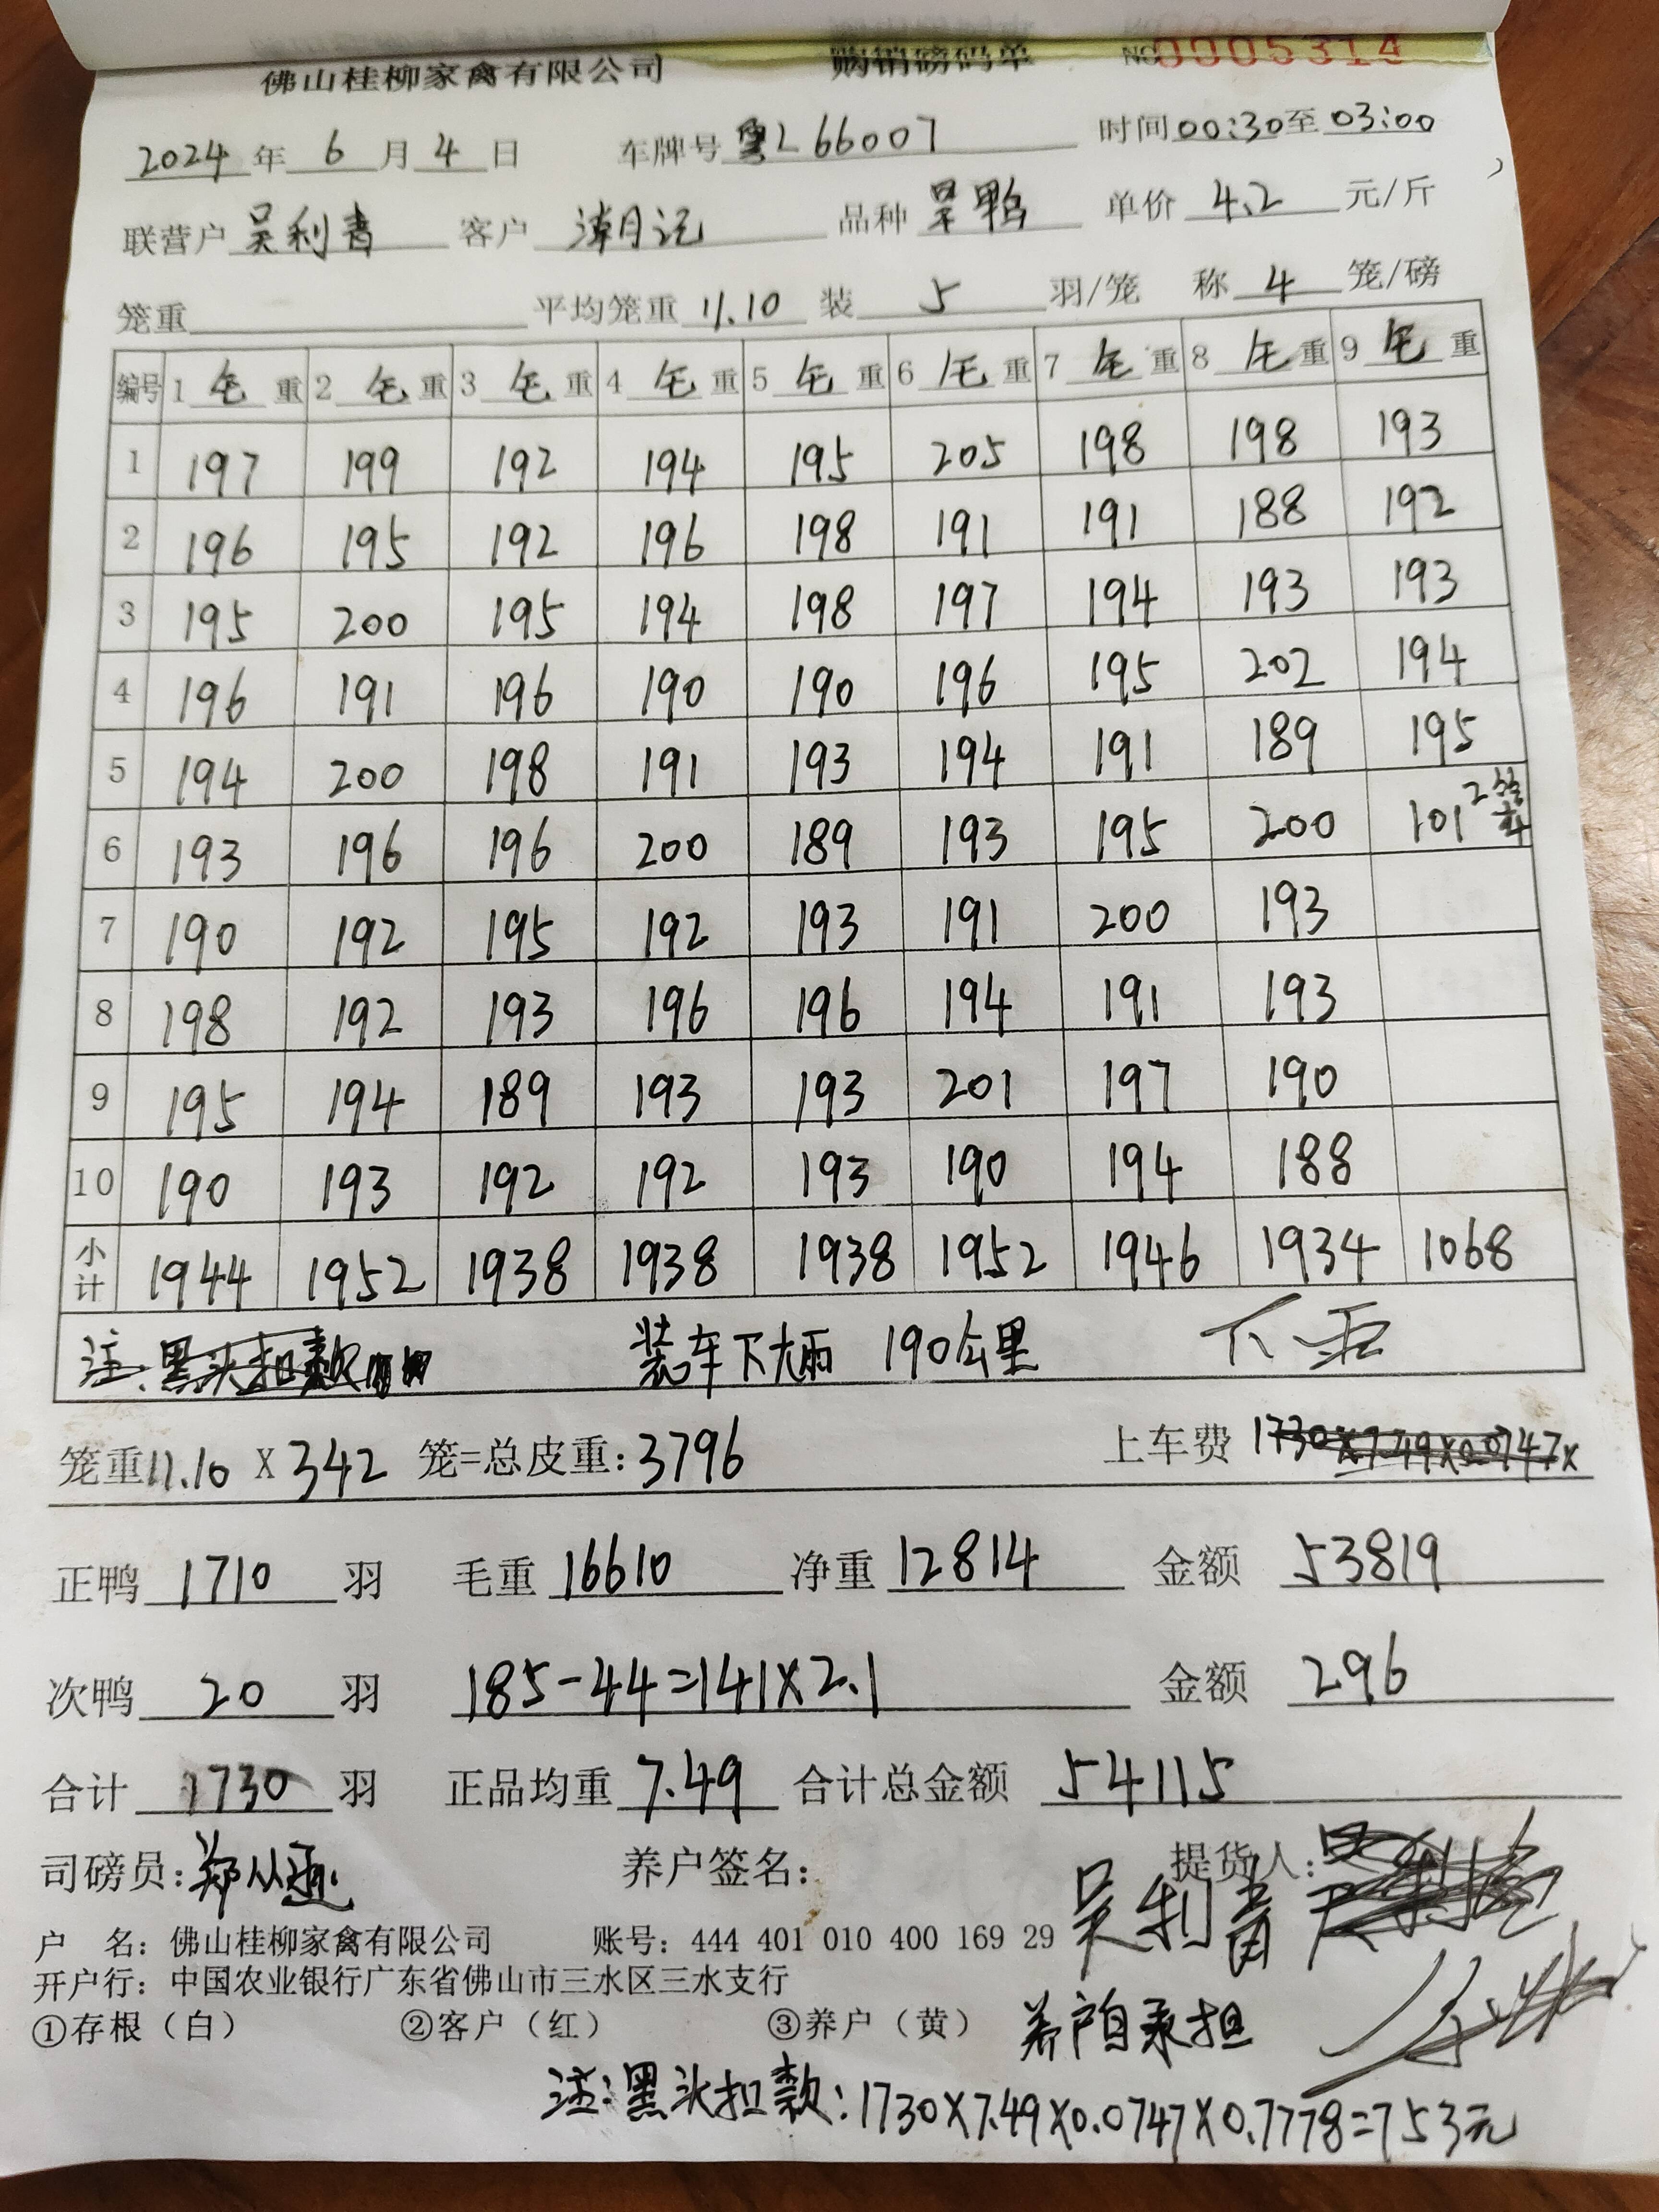 佛山桂柳家禽有限公司 购销磅码单 NO 0005314
2024 年 6 月 4 日 车牌号 粤L66007 时间 00:30 至 03:00
联营户 吴利青 客户 潮月记 品种 旱鸭 单价 4.2 元/斤
笼重 平均笼重 11.10 装 5 羽/笼 称 4 笼/磅
编号 1 毛 重 2 毛 重 3 毛 重 4 毛 重 5 毛 重 6 毛 重 7 毛 重 8 毛 重 9 毛 重
1 197 199 192 194 195 205 198 198 193
2 196 195 192 196 198 191 191 188 192
3 195 200 195 194 198 197 194 193 193
4 196 191 196 190 190 196 195 202 194
5 194 200 198 191 193 194 191 189 195
6 193 196 196 200 189 193 195 200 101 2
7 190 192 195 192 193 191 200 193
8 198 192 193 196 196 194 191 193
9 195 194 189 193 193 201 197 190
10 190 193 192 192 193 190 194 188
小计 1944 1952 1938 1938 1938 1952 1946 1934 1068
注:黑头扣款 装车下大雨 190公里 下雨
笼重 11.10 X 342 笼=总皮重: 3796 上车费 1730×7.49×0.0747×
正鸭 1710 羽 毛重 16610 净重 12814 金额 53819
次鸭 20 羽 185-44=141×2.1 金额 296
合计 1730 羽 正品均重 7.49 合计总金额 54115
司磅员: 养户签名: 提货人:
吴利青
户 名: 佛山桂柳家禽有限公司 账号: 444 401 010 400 169 29
开户行: 中国农业银行广东省佛山市三水区三水支行
①存根(白) ②客户(红) ③养户(黄) 养户自承担
注:黑头扣款:1730×7.49×0.0747×0.7778=753元